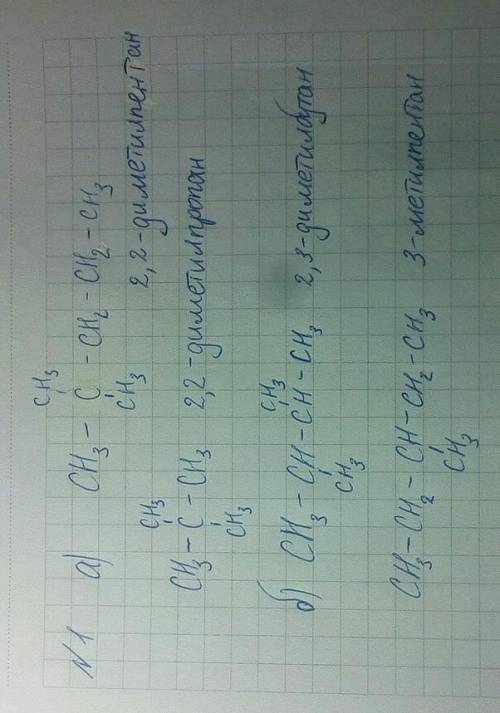 CH₃
№1 а) CH₃ – C – CH₂ – CH₂ – CH₃
CH₃ 2,2-диметилпентан
CH₃
CH₃ – C – CH₃ 2,2-диметилпропан
CH₃
CH₃
б) CH₃ – CH – CH – CH₃ 2,3-диметилбутан
CH₃
CH₃ – CH₂ – CH – CH₂ – CH₃ 3-метилпентан
CH₃